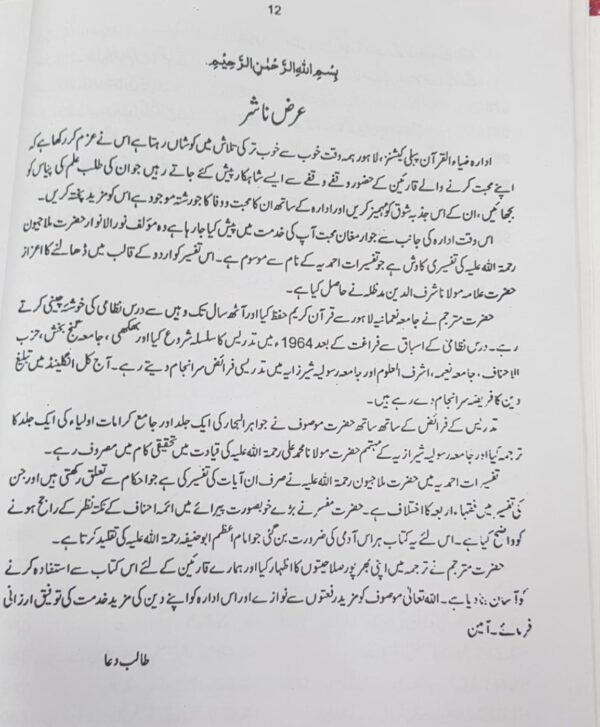 12
بِسْمِ اللهِ الرَّحْمٰنِ الرَّحِيْمِ
عرض ناشر
ادارہ ضیاء القرآن پبلی کیشنز، لاہور ہمہ وقت خوب سے خوب تر کی تلاش میں کوشاں رہتا ہے اس نے عزم کر رکھا ہے کہ
اپنے محبت کرنے والے قارئین کے حضور وقفے وقفے سے ایسے شاہکار پیش کئے جاتے رہیں جو ان کی طلب علم کی پیاس کو
بجھائیں، ان کے اس جذبہ شوق کو مہمیز کریں اور ادارہ کے ساتھ ان کا محبت و وفا کا جو رشتہ موجود ہے اس کو مزید پختہ کریں۔
اس وقت ادارہ کی جانب سے جو ارمغان محبت آپ کی خدمت میں پیش کیا جا رہا ہے وہ مؤلف نور الانوار حضرت ملا جیون
رحمۃ اللہ علیہ کی تفسیری کاوش ہے جو تفسیرات احمدیہ کے نام سے موسوم ہے۔ اس تفسیر کو اردو کے قالب میں ڈھالنے کا اعزاز
حضرت علامہ مولانا شرف الدین مدظلہ نے حاصل کیا ہے۔
حضرت مترجم نے جامعہ نعمانیہ لاہور سے قرآن کریم حفظ کیا اور آٹھ سال تک وہیں سے درس نظامی کی خوشہ چینی کرتے
رہے۔ درس نظامی کے اسباق سے فراغت کے بعد 1964ء میں تدریس کا سلسلہ شروع کیا اور بھکھی، جامعہ گنج بخش، حزب
الاحناف، جامعہ نعیمیہ، اشرف العلوم اور جامعہ رسولیہ شیرازیہ میں تدریسی فرائض سر انجام دیتے رہے۔ آج کل انگلینڈ میں تبلیغ
دین کا فریضہ سر انجام دے رہے ہیں۔
تدریس کے فرائض کے ساتھ ساتھ حضرت موصوف نے جواہر البحار کی ایک جلد اور جامع کرامات اولیاء کی ایک جلد کا
ترجمہ کیا اور جامعہ رسولیہ شیرازیہ کے مہتمم حضرت مولانا محمد علی رحمۃ اللہ علیہ کی قیادت میں تحقیقی کام میں مصروف رہے۔
تفسیرات احمدیہ میں حضرت ملا جیون رحمۃ اللہ علیہ نے صرف ان آیات کی تفسیر کی ہے جو احکام سے تعلق رکھتی ہیں اور جن
کی تفسیر میں فقہاء اربعہ کا اختلاف ہے۔ حضرت مفسر نے بڑے خوبصورت پیرائے میں ائمہ احناف کے نکتہ نظر کے راجح ہونے
کو واضح کیا ہے۔ اس لئے یہ کتاب ہر اس آدمی کی ضرورت بن گئی جو امام اعظم ابو حنیفہ رحمۃ اللہ علیہ کی تقلید کرتا ہے۔
حضرت مترجم نے ترجمہ میں اپنی بھرپور صلاحیتوں کا اظہار کیا اور ہمارے قارئین کے لئے اس کتاب سے استفادہ کرنے
کو آسان بنا دیا ہے۔ اللہ تعالیٰ موصوف کو مزید رفعتوں سے نوازے اور اس ادارہ کو اپنے دین کی مزید خدمت کی توفیق ارزانی
فرمائے۔ آمین
طالب دعا